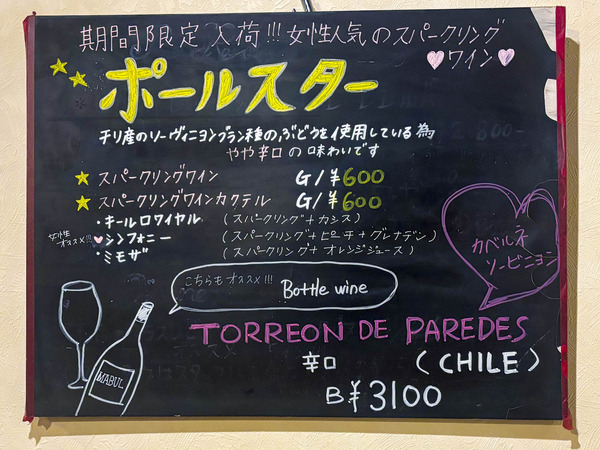 期間限定入荷!!!女性人気のスパークリング
♡ワイン♡
ポールスター
チリ産のソーヴィニヨンブラン種の,ぶどうを使用している為
やや辛口の味わいです
スパークリングワイン G/¥600
スパークリングワインカクテル G/¥600
・キールロワイヤル (スパークリング+カシス)
女性オススメ!!! ♡シンフォニー (スパークリング+ピーチ+グレナデン)
・ミモザ (スパークリング+オレンジジュース)
カベルネ
ソービニョン
こちらもオススメ!!! Bottle wine
TORREON DE PAREDES
辛口 (CHILE)
B¥3100
MABUL